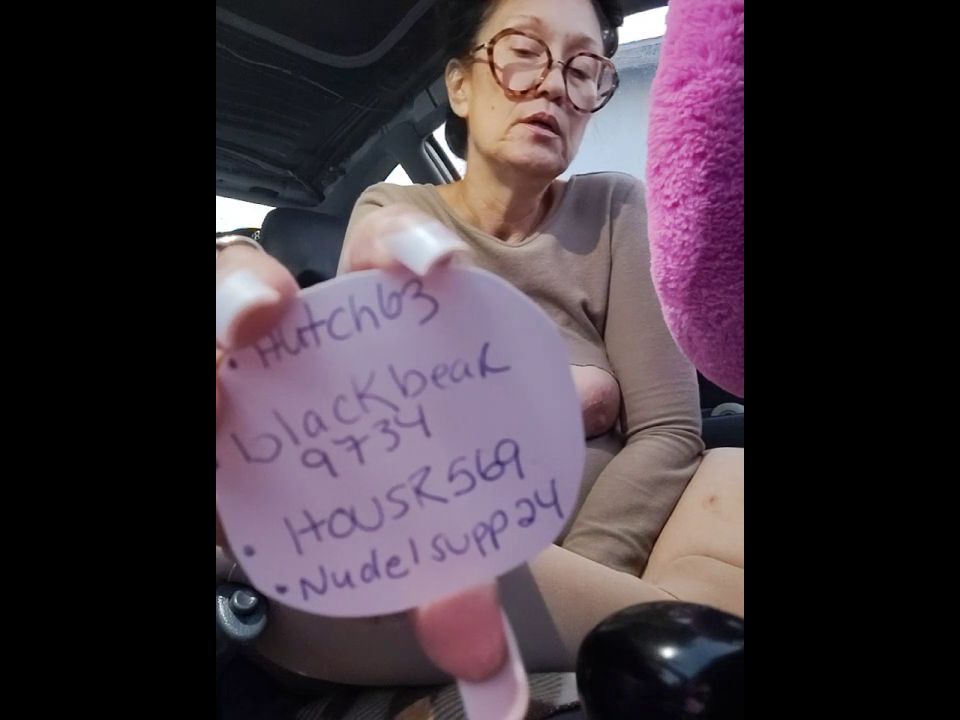 • Hutch63
blackbear
9734
• HOUSR569
• Nudelsupp24